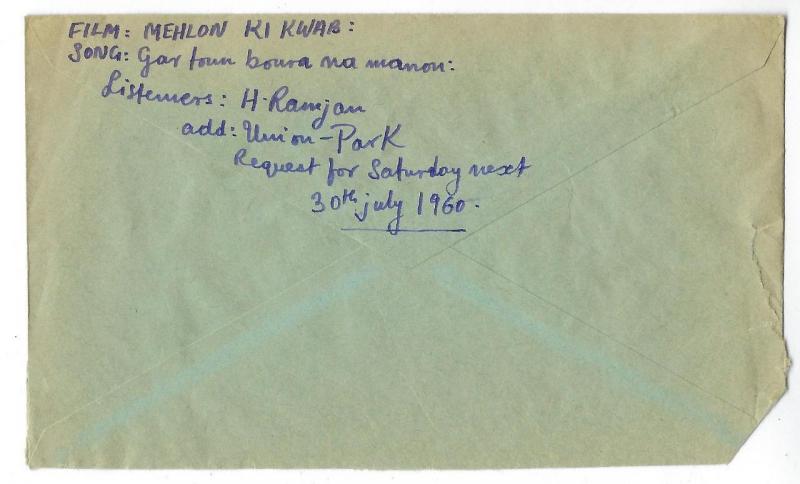 FILM: MEHLON KI KWAB:
SONG: Gar toun boura na manon:
Listeners: H. Ramjan
add: Union-Park
Request for Saturday next
30th july 1960.